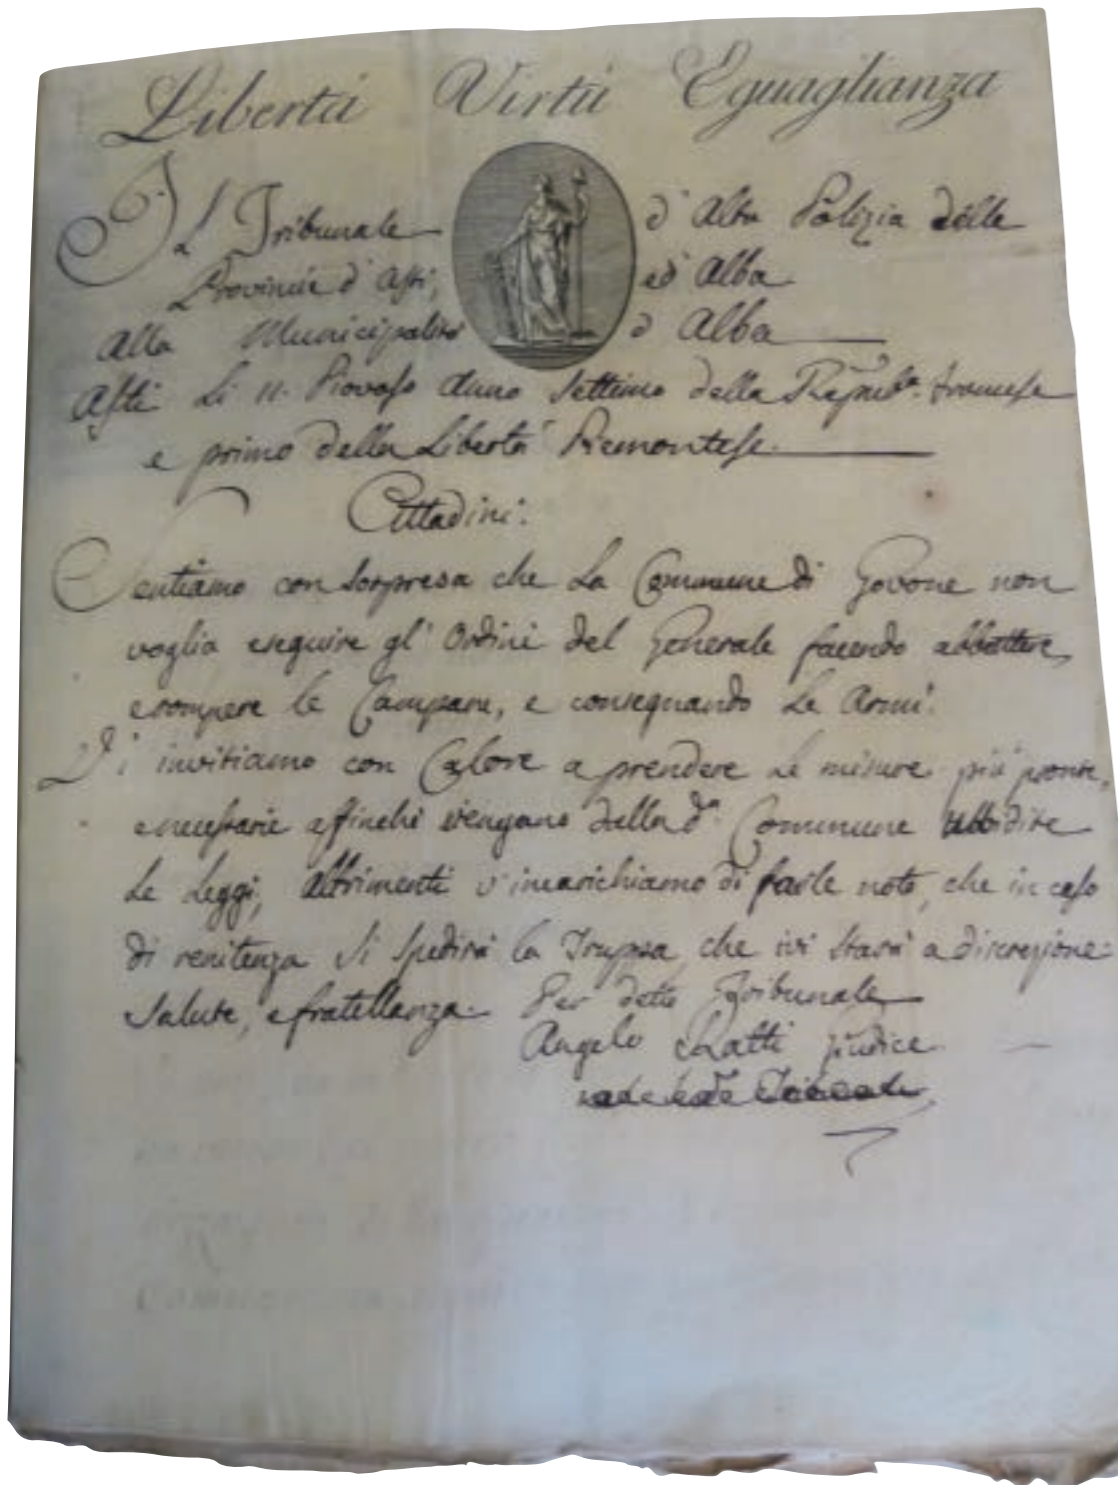 Libertà Virtù Eguaglianza
Il Tribunale d'Alta Polizia delle
Provincie d'Asti, ed' Alba
Alla Municipalità d Alba
Asti Li 11. Piovoso Anno Settimo della Repub.ca francese
e primo della Libertà Piemontese.
Cittadini:
Sentiamo con Sorpresa che La Commune di Govone non
voglia eseguire gl' Ordini del Generale facendo abbattere,
e rompere le Campane, e consegnando Le Armi.
Vi invitiamo con Calore a prendere Le misure più pronte,
e necessarie affinchè vengano dalla d.a Commune ubbidite
Le Leggi, altrimenti v'incarichiamo di farle noto, che in caso
di renitenza Si Spedirà la Truppa che ivi Starà a discrezione.
Salute, e fratellanza. Per detto Tribunale
Angelo Ratti giudice